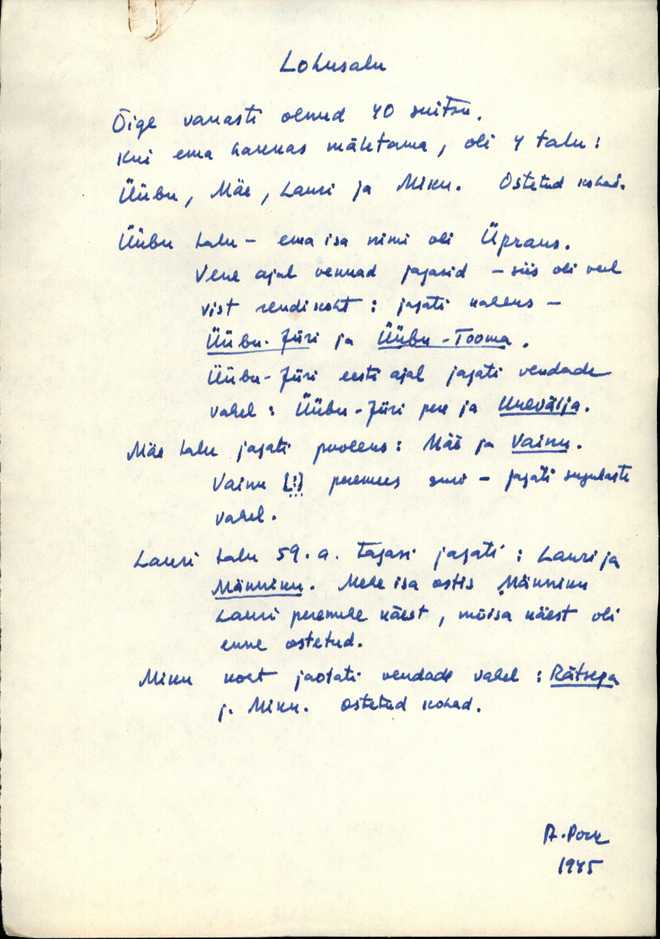 Lohusalu
Õige vanasti olnud 40 suitsu.
Kui ema hakkas mäletama, oli 4 talu:
Üübu, Mäe, Lauri ja Miku. Ostetud kohad.
Üübu talu – ema isa nimi oli Üpraus.
Vene ajal vennad jagasid – siis oli veel
vist rendikoht: jagati kaheks –
Üübu-Jüri ja Üübu-Tooma.
Üübu-Jüri eesti ajal jagati vendade
vahel: Üübu-Jüri pere ja Urevälja.
Mäe talu jagati pooleks: Mäe ja Vainu.
Vainu (:) peremees suri – jagati sugulaste
vahel.
Lauri talu 59. a. tagasi jagati: Lauri ja
Männiku. Mehe isa ostis Männiku
Lauri peremehe käest, mõisa käest oli
enne ostetud.
Miku koht jaotati vendade vahel: Rätsepa
j. Miku. Ostetud kohad.
1945